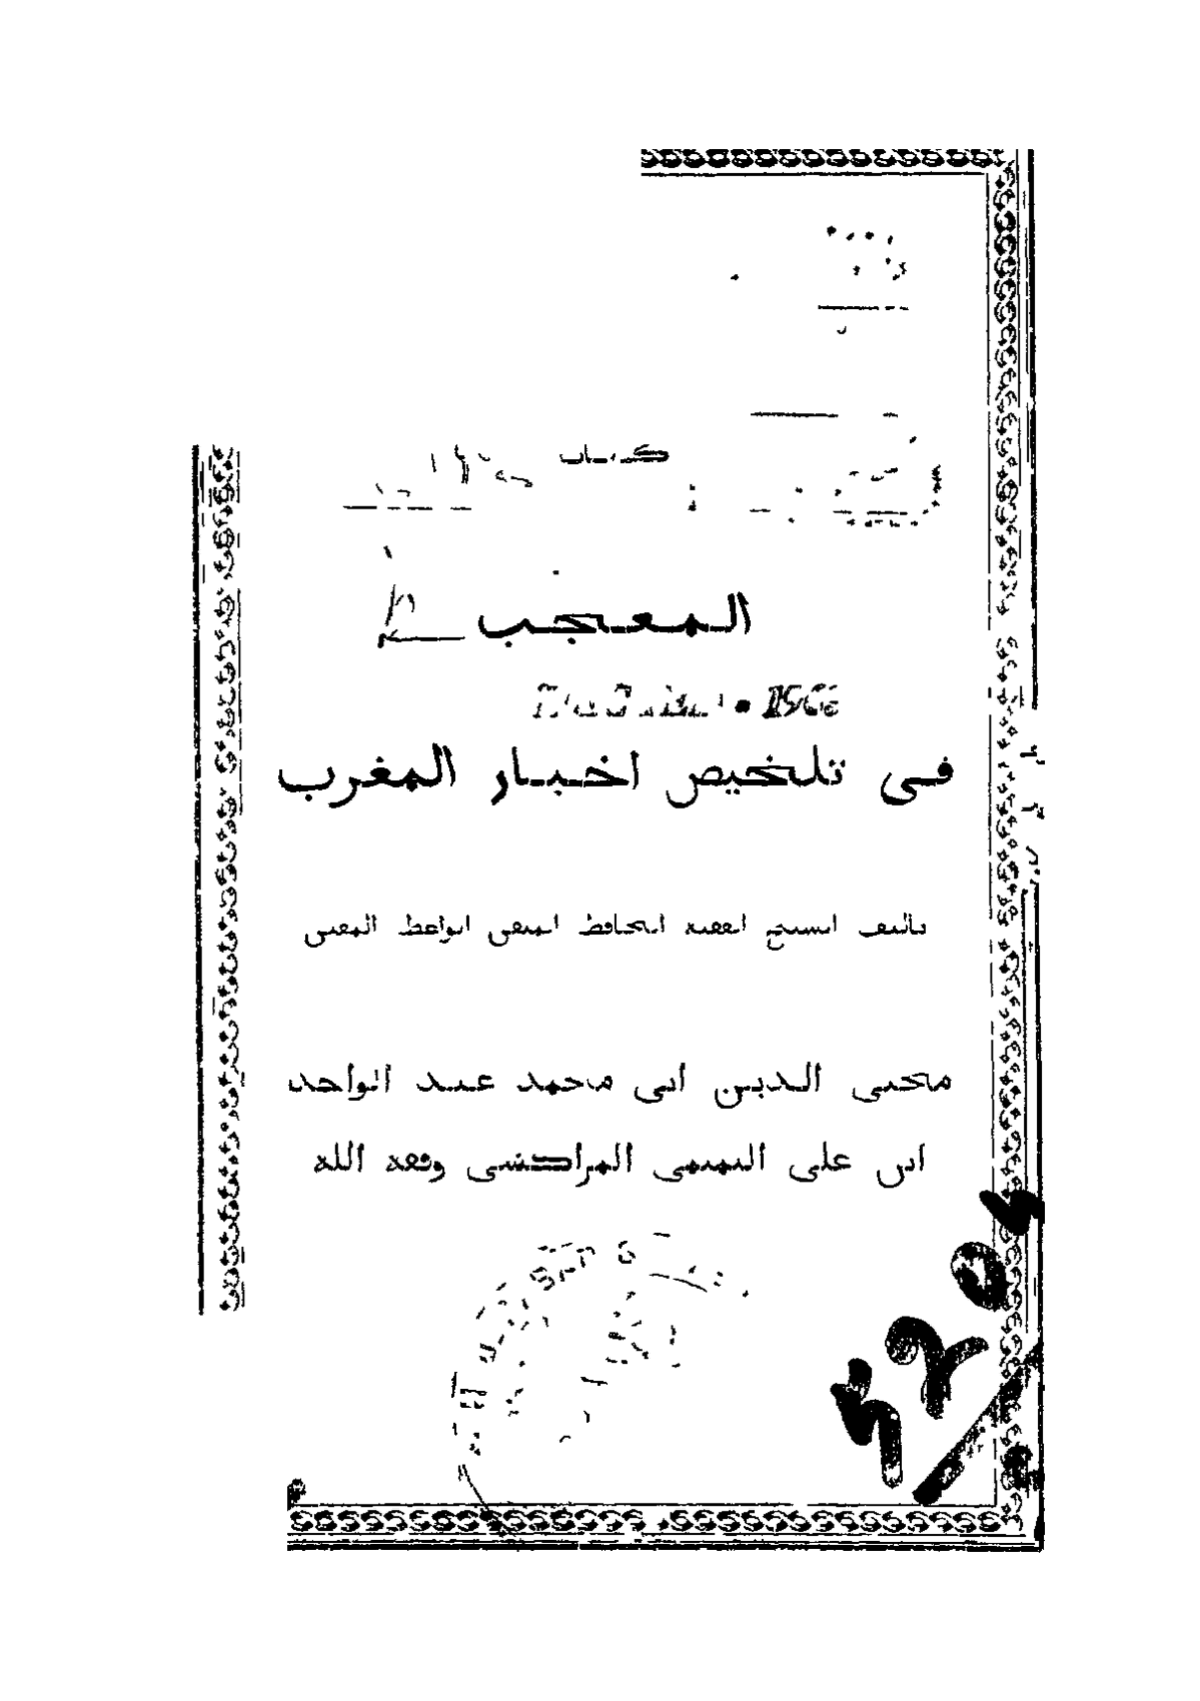 كتاب
المعجب
في تلخيص اخبار المغرب
تأليف الشيخ الفقيه الحافظ المتقن الواعظ المفتى
محيى الدين ابى محمد عبد الواحد
ابن على التميمى المراكشى وفقه الله